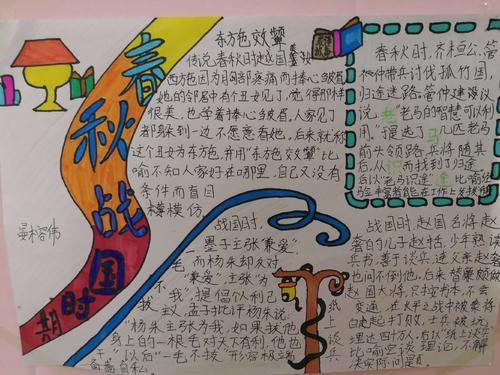 春秋战国
时期
东方色效颦
传说春秋时赵国美女
西方施因为胸部疼痛而捧心皱眉
她的邻居中有个丑女见了,觉得那样
很美,也学着捧心皱眉,人家见了
都躲到一边不愿意看她,后来就称
这个丑女为东方施,并用“东方色效颦”比
喻不知人家好在哪里,自己又没有
条件而盲目
模仿
春秋时,齐桓公、管
仲带兵讨伐孤竹国
归途迷路。管仲建议
说,“老马的智慧可以利
用。”于是选了几匹老马
前头领路,兵将随其
后,从而找到了归途。
后以“老马识途”比喻
战国时,
墨子主张“兼爱”,
毛,而杨朱却反对
“兼爱”,主张“为
我”,提倡“利己
拔”主义,孟子批评杨朱说:
“杨朱主张为我,如果拔他
身上的一根毛对天下有利,他也
不干。”以后“一毛不拔”形容极端
自私。
纸上谈兵
战国时,赵国名将赵
奢的儿子赵括,少年熟读
兵书,善于谈兵,连父亲赵奢
也问不倒他,后来替廉颇做
赵国大将,只按书本,不会
交通,在长平之战中被秦将
白起打败,士兵被坑
埋达四十万,后以“纸上谈兵”
比喻空谈理论,不解
决实际问题。